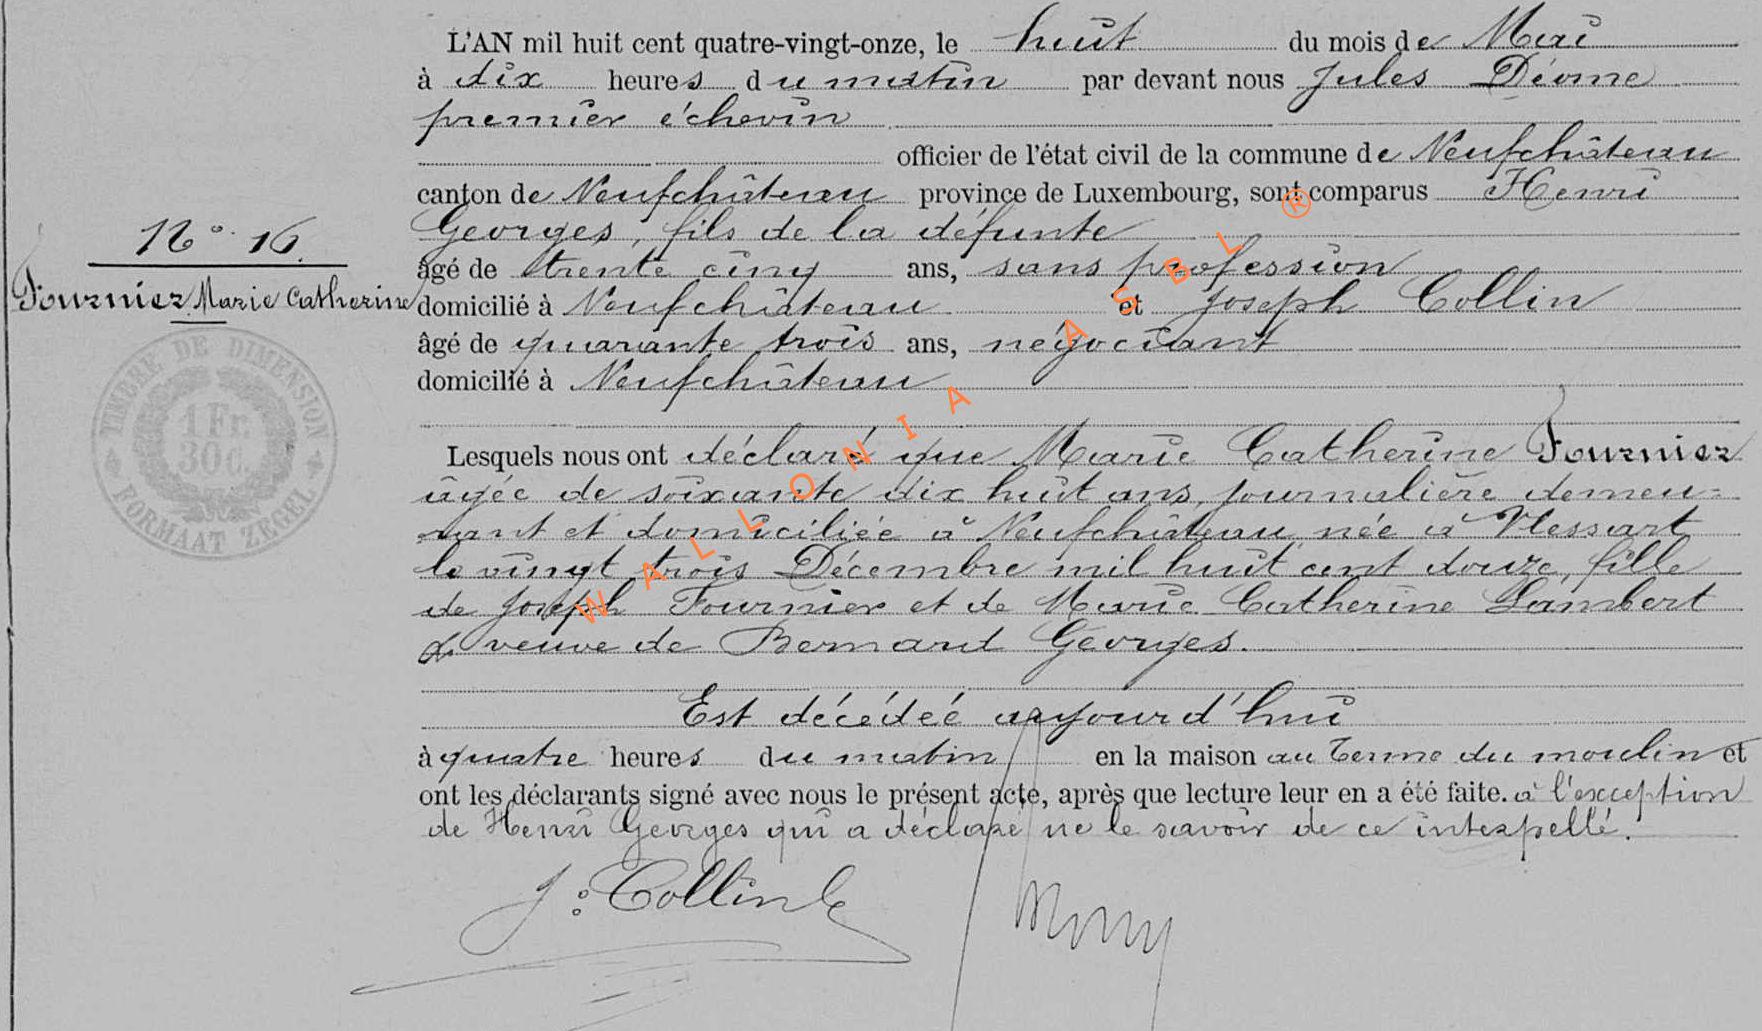 L'AN mil huit cent quatre-vingt-onze, le huit du mois de Mai
à dix heures du matin par devant nous Jules Déome
premier échevin
officier de l'état civil de la commune de Neufchâteau
canton de Neufchâteau province de Luxembourg, sont comparus Henri
Georges, fils de la défunte
âgé de trente cinq ans, sans profession
domicilié à Neufchâteau et Joseph Collin
âgé de quarante trois ans, négociant
domicilié à Neufchâteau
N° 16.
Fournier Marie Catherine
TIMBRE DE DIMENSION
1 Fr.
30 c.
FORMAAT ZEGEL
Lesquels nous ont déclaré que Marie Catherine Fournier
âgée de soixante dix huit ans, journalière demeu=
rant et domiciliée à Neufchâteau née à Vlessart
le vingt trois Décembre mil huit cent douze, fille
de Joseph Fournier et de Marie Catherine Lambert
& veuve de Bernard Georges.
Est décédée aujourd'hui
à quatre heures du matin en la maison au Terme du moulin et
ont les déclarants signé avec nous le présent acte, après que lecture leur en a été faite. à l'exception
de Henri Georges qui a déclaré ne le savoir de ce interpellé.
J: Collin
WALLONIA ASBL ®